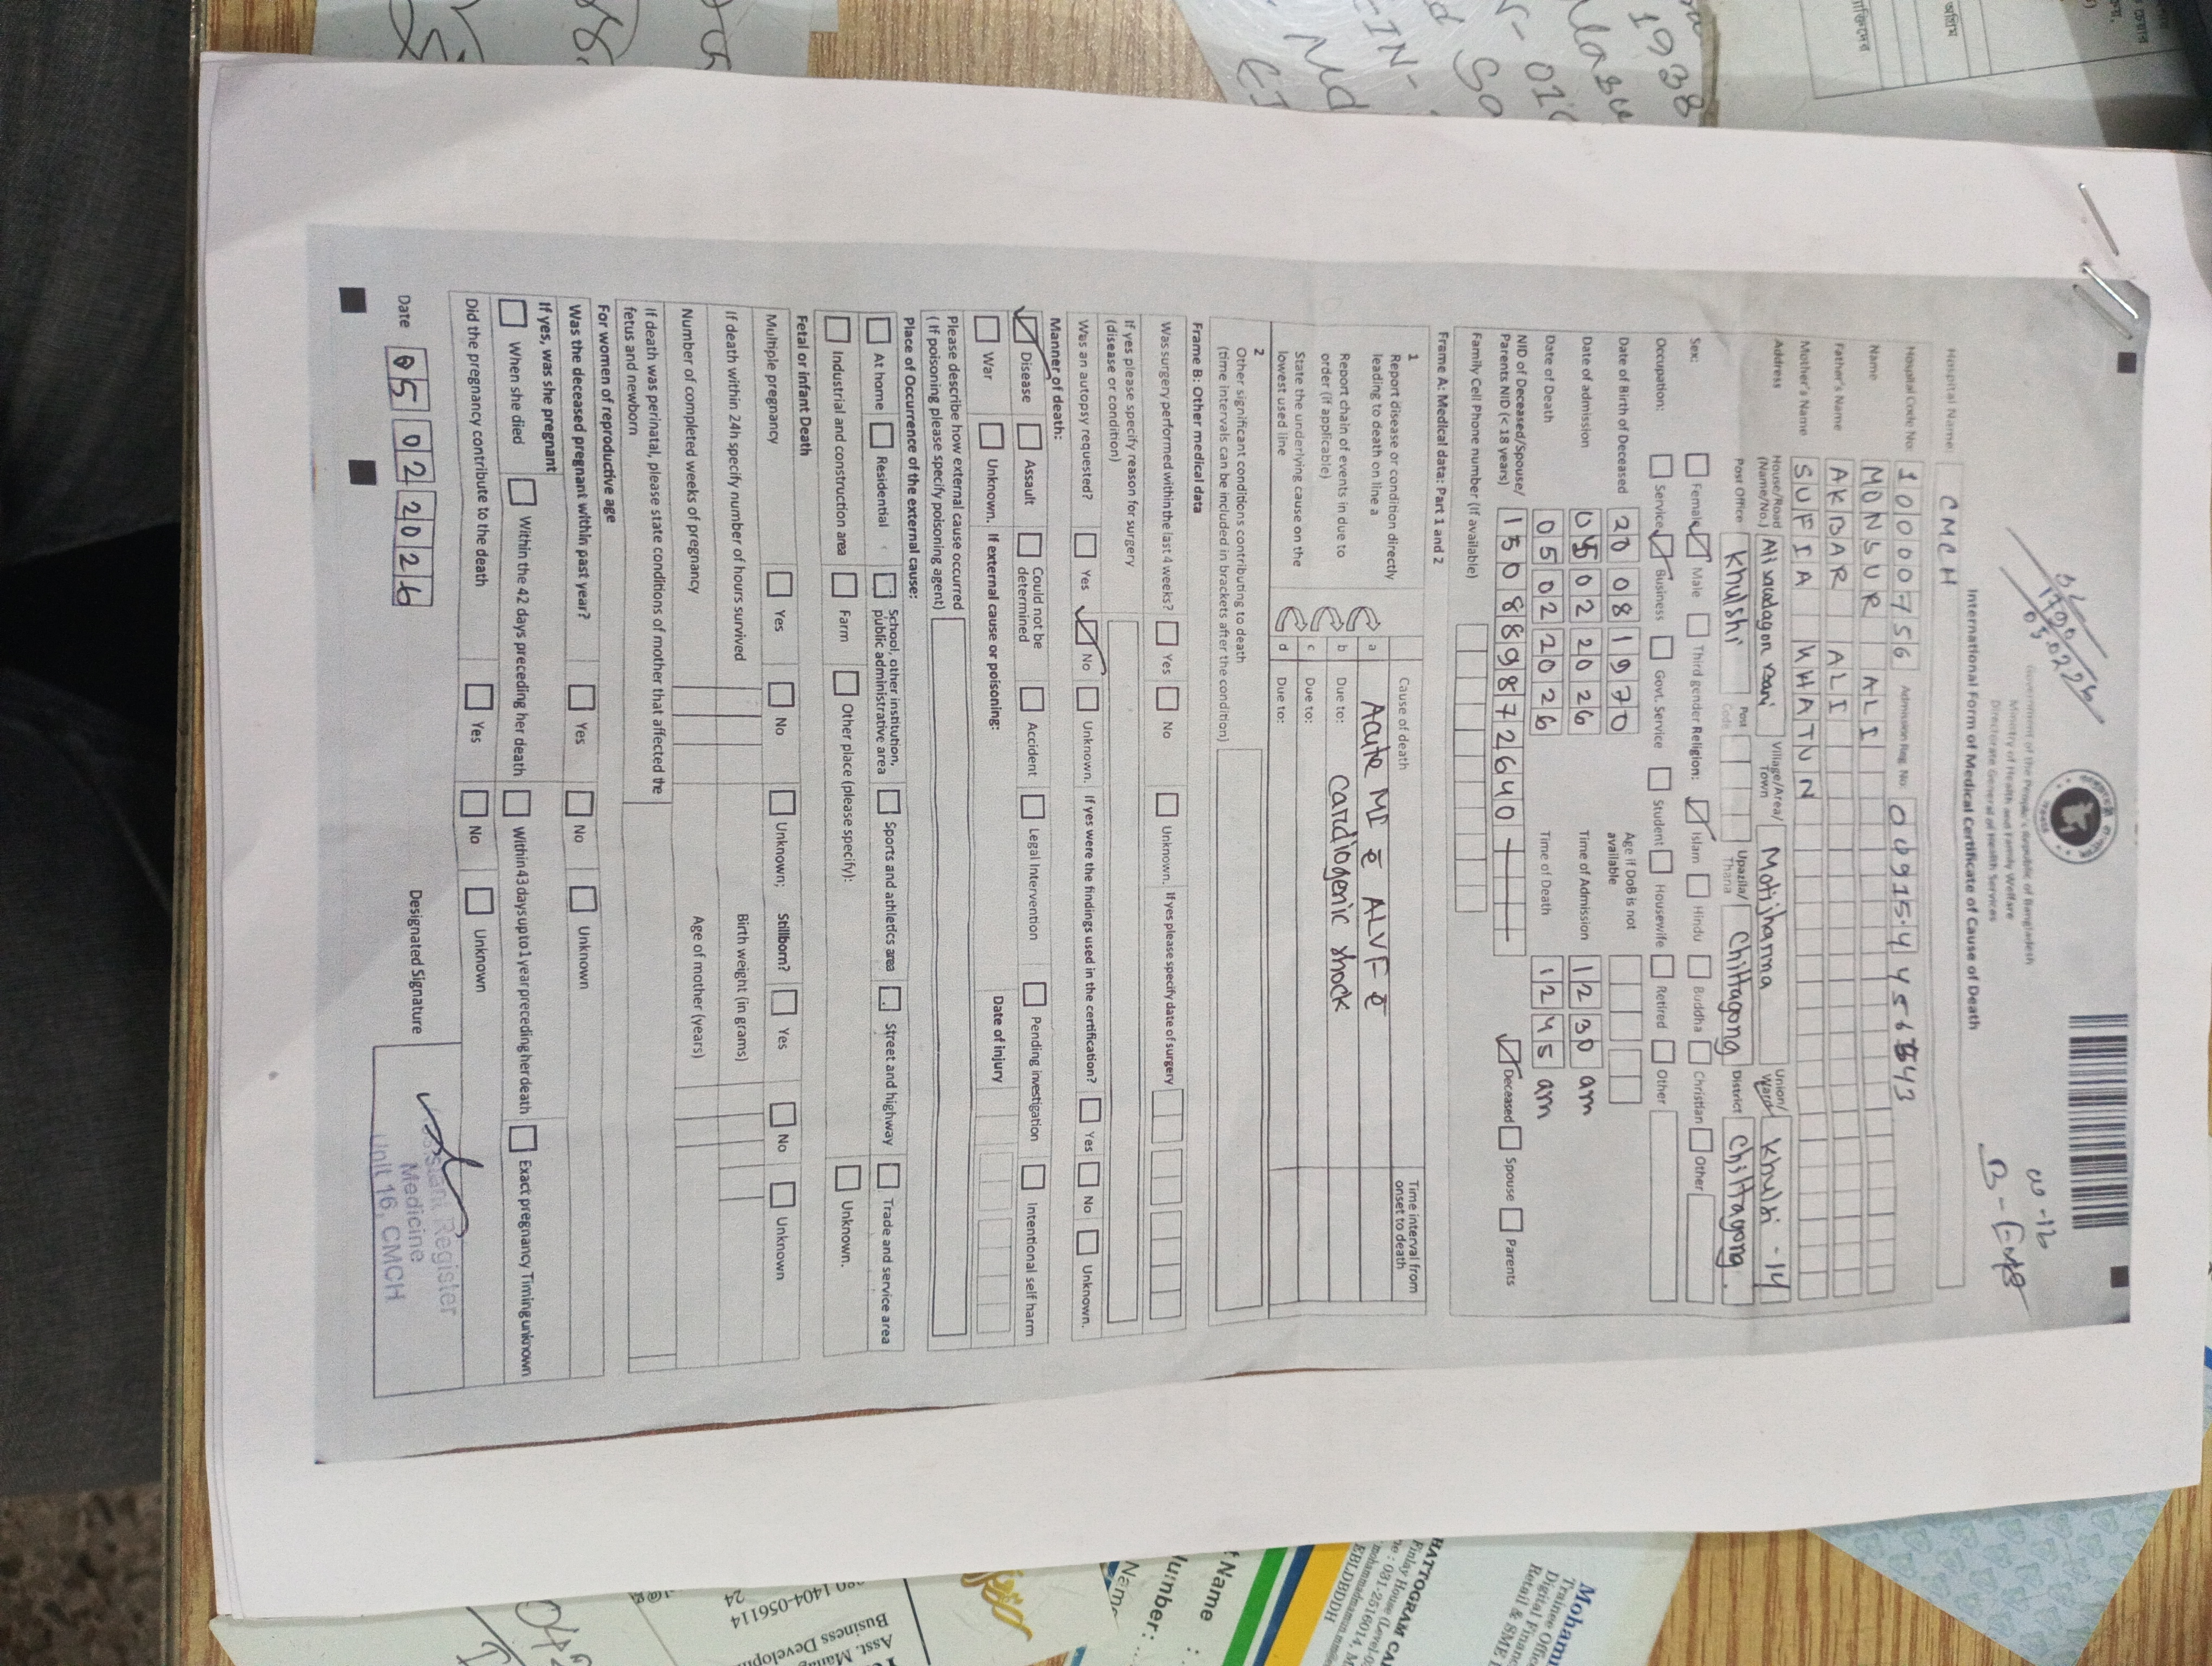 Government of the People's Republic of Bangladesh
Ministry of Health and Family Welfare
Directorate General of Health Services
International Form of Medical Certificate of Cause of Death
Hospital Name: CMCH
Hospital Code No: 10000756 Admission Reg. No:
Name MONSUR ALI
Father's Name AKBAR ALI
Mother's Name SUFIA KHATUN
Address House/Road (Name/No.) Village/Area/Town Motijharna Union/Ward Khulsi - 14
Post Office Khulshi Post Code Upazila/Thana Chittagong District Chittagong.
Sex: Female Male Third gender Religion: Islam Hindu Buddha Christian Other
Occupation: Service Business Govt. Service Student Housewife Retired Other
Date of Birth of Deceased 20 08 1970 Age if DoB is not available
Date of admission 05 02 2026 Time of Admission 12 30 am
Date of Death 05 02 2026 Time of Death 12 45 am
NID of Deceased/Spouse/Parents NID (< 18 years) 150889872640 Deceased Spouse Parents
Family Cell Phone number (If available)
Frame A: Medical data: Part 1 and 2
1 Cause of death Time interval from onset to death
Report disease or condition directly leading to death on line a
a Acute MI c̄ ALVF c̄
Report chain of events in due to order (if applicable)
b Due to: cardiogenic shock
State the underlying cause on the lowest used line
c Due to:
d Due to:
2
Other significant conditions contributing to death
(time intervals can be included in brackets after the condition)
Frame B: Other medical data
Was surgery performed within the last 4 weeks? Yes No Unknown. If yes please specify date of surgery
If yes please specify reason for surgery
(disease or condition)
Was an autopsy requested? Yes No Unknown. If yes were the findings used in the certification? Yes No Unknown.
Manner of death:
Disease Assault Could not be determined Accident Legal Intervention Pending investigation Intentional self harm
War Unknown. If external cause or poisoning: Date of injury
Please describe how external cause occurred
( If poisoning please specify poisoning agent)
Place of Occurrence of the external cause:
At home Residential School, other institution, public administrative area Sports and athletics area Street and highway Trade and service area
Industrial and construction area Farm Other place (please specify): Unknown.
Fetal or infant Death
Multiple pregnancy Yes No Unknown; Stillborn? Yes No Unknown
If death within 24h specify number of hours survived Birth weight (in grams)
Number of completed weeks of pregnancy Age of mother (years)
If death was perinatal, please state conditions of mother that affected the
fetus and newborn
For women of reproductive age
Was the deceased pregnant within past year? Yes No Unknown
If yes, was she pregnant
When she died Within the 42 days preceding her death Within 43 days up to 1 year preceding her death Exact pregnancy Timing unknown
Did the pregnancy contribute to the death Yes No Unknown
Date 05 02 2026 Designated Signature
Register
Medicine
Unit 16, CMCH